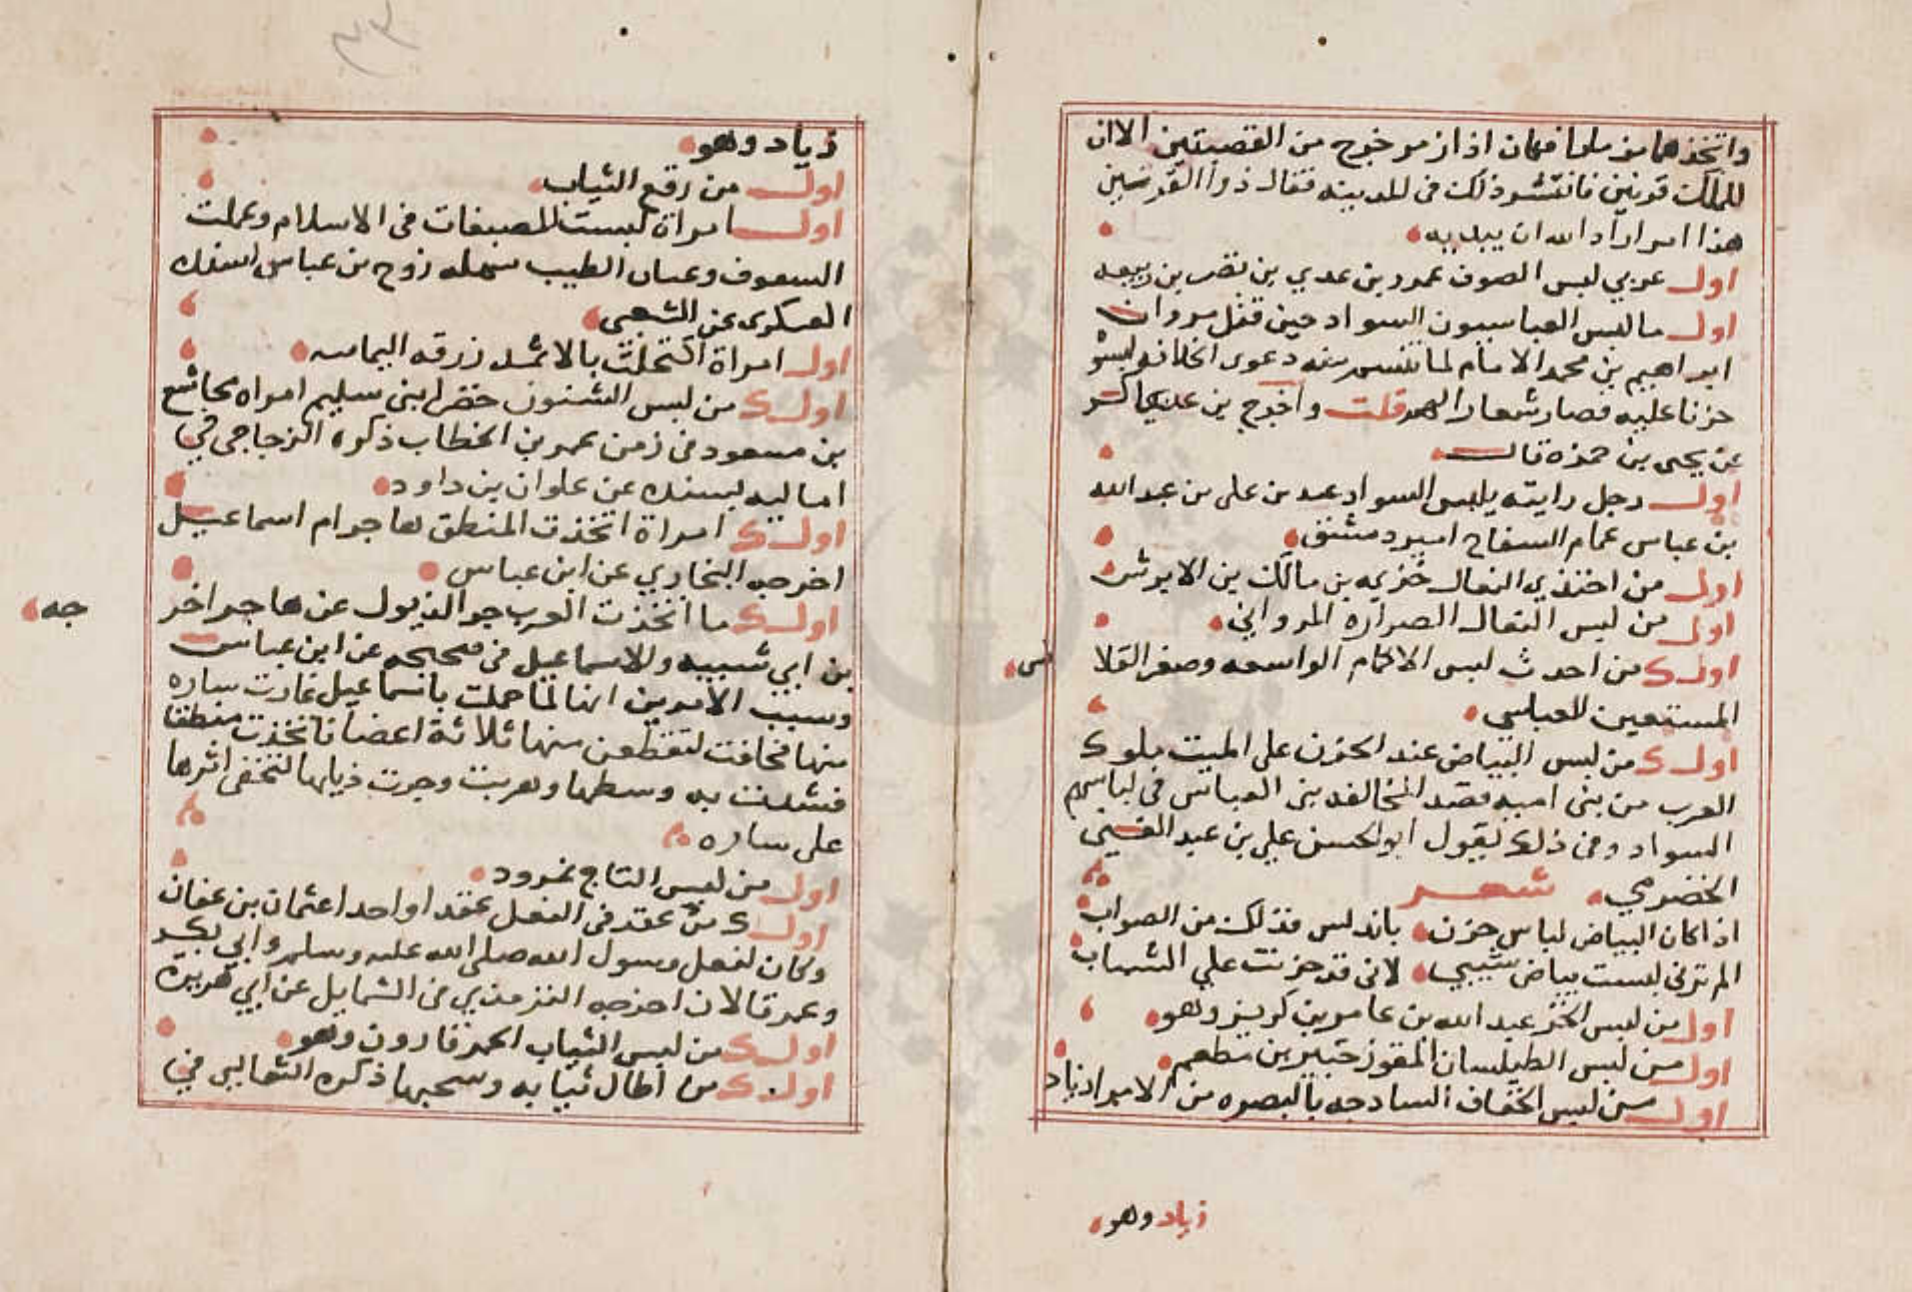 واتخذهما من فمان اذا زمر خرج من القصبتين الاان
للملك قرنين فانتشر ذلك في المدينة فقال ذوا القرنين
هذا امر اراد الله ان يبديه
اول عربي لبس الصوف عمرو بن عدي بن نضر بن ربيعه
اول ما لبس العباسيون السواد حين قتل مروان
ابراهيم بن محمد الامام لما دعوى الخلافه لبسوا
حزنا عليه فصار شعار الهم قلت واخرج بن عساكر
عن يحيى بن حمزه قال
اول رجل رايته يلبس السواد عبد بن على بن عبد الله
بن عباس عمام السفاح امير دمشق
اول من احتذي النعال خزيمه بن مالك بن الابرش
اول من لبس النعال الصراره المرواني
اولـ من احدث لبس الاكمام الواسعه وصغر القلا
نس
المستعين العباسي
اولـ من لبس البياض عند الحزن على الميت ملوك
العرب من بنى اميه قصد المخالفه بنى العباس في لباسهم
السواد وفي ذلك يقول ابو الحسن علي بن عبد الغني
الخضري شعر
اذا كان البياض لباس حزن باندلس فذلك من الصواب
الم ترنى لبست بياض شيبي لاني قد حزنت علي الشباب
اول من لبس الخز عبد الله بن عامر بن كريز وهو
اول من لبس الطيلسان المقور جبير بن مطعم
اول من لبس الخفاف الساده جه بالبصره من الامرا زياد
زياد وهو
زياد وهو
اول من رقع الثياب
اول امراة لبست المصبغات في الاسلام وعملت
السعوف الطيب زوج بن عباس اسنده
العسكرى عن الشعبي
اول امراة اكتحلت بالاثمد زرقه اليمامه
اولـ من لبس الشنوف خضرا بنى سليم امراه مجاشع
بن مسعود في زمن عمر بن الخطاب ذكره الزجاجي في
اماليه بسنده عن علوان بن داود
اولـ امراة اتخذت المنطق هاجر ام اسماعيل
اخرجه البخاري عن ابن عباس
اولـ ما اتخذت العرب جر الذيول عن هاجر اخر
جه
بن ابي شيبه والاسماعيل في صحيحه عن ابن عباس
وسبب الامرين انها لما حملت باسماعيل غارت ساره
منها فخافت لتقطعن منها ثلاثة اعضا فاتخذت منطقا
فشدت به وسطها وهربت وجرت ذيلها لتخفى اثرها
على ساره
اول من لبس التاج نمرود
اولـ من عقد في النعل عقدا واحدا عثمان بن عفان
وكان لنعل رسول الله صلى الله عليه وسلم وابي بكر
وعمر قبالان اخرجه الترمذي في الشمايل عن ابي هريرة
اولـ من لبس الثياب الحمر قارون وهو
اولـ من اطال ثيابه وسحبها ذكره الثعالبي في